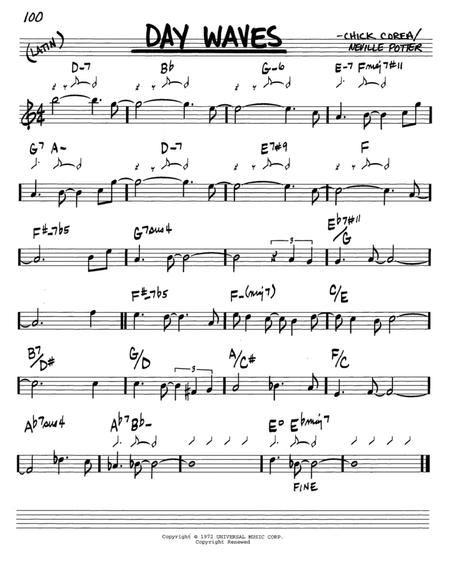 100
DAY WAVES
(LATIN)
-CHICK COREA/
NEVILLE POTTER
D-7 Bb G-6 E-7 Fmaj7#11
G7 A- D-7 E7#9 F
F#-7b5 G7sus4 Eb7#11/G
3
F#-7b5 F-(maj7) C/E
B7/D# G/D A/C# F/C
3
Ab7sus4 Ab7 Bb- Eo Ebmaj7
FINE
Copyright © 1972 UNIVERSAL MUSIC CORP.
Copyright Renewed